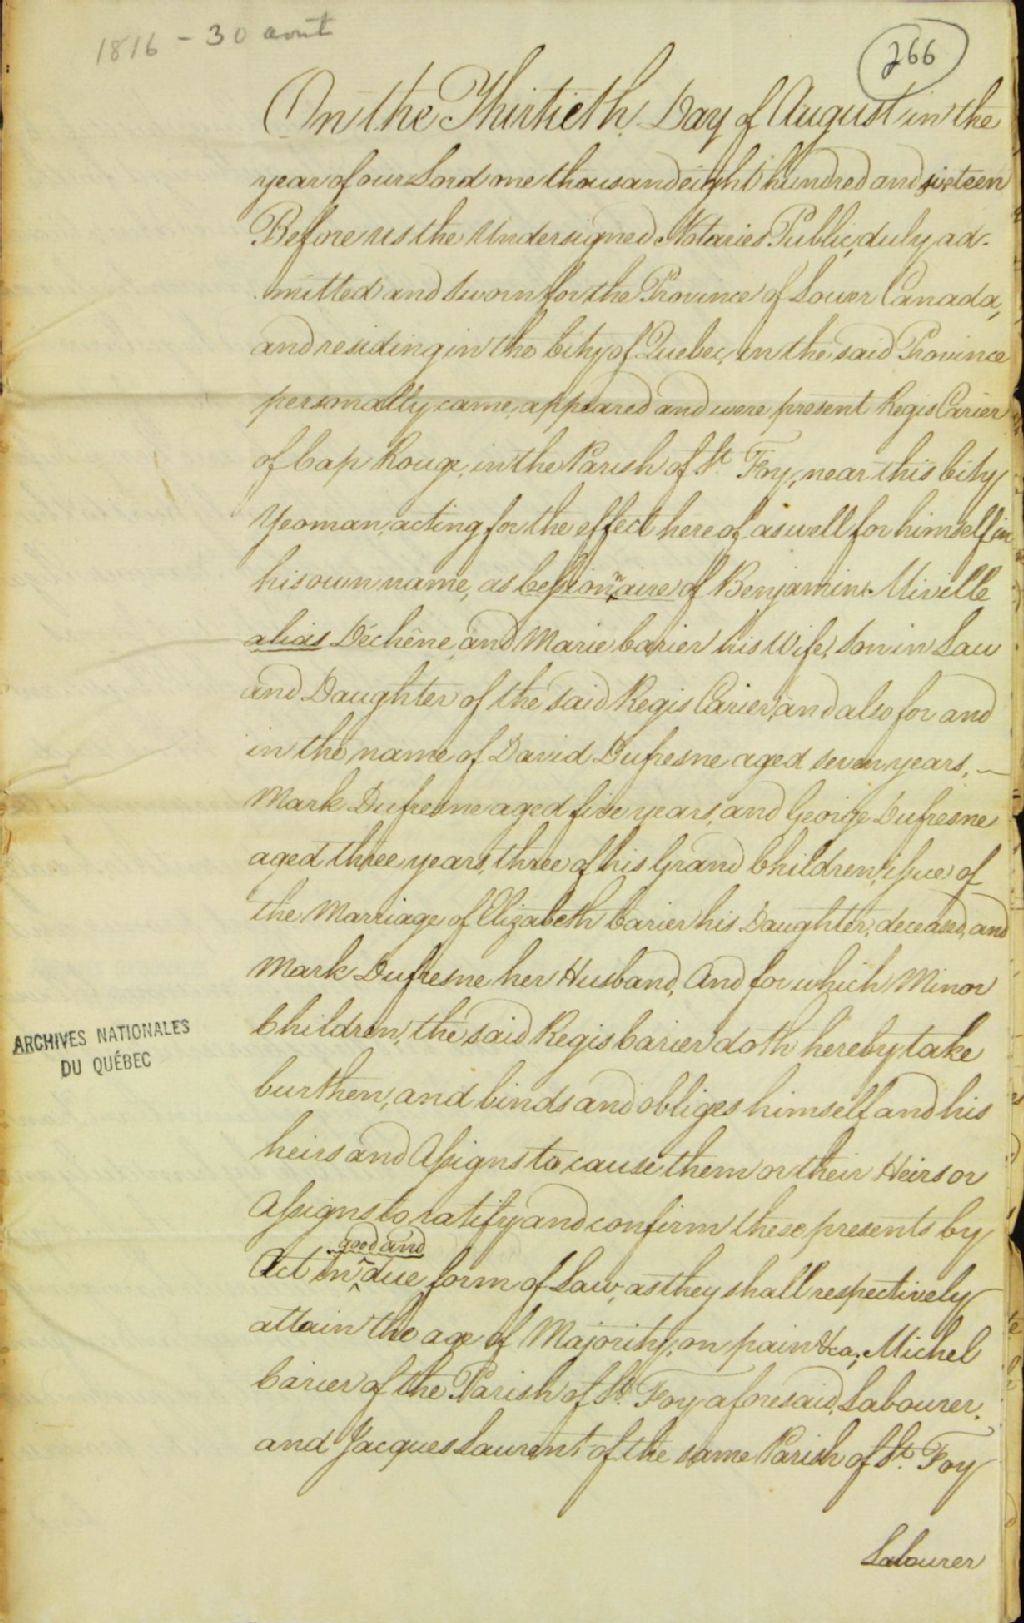 1816 - 30 aout
266
On the Thirtieth Day of August in the
year of our Lord one thousand eight hundred and sixteen
Before us the Undersigned Notaries Public, duly ad-
mitted and sworn for the Province of Lower Canada,
and residing in the City of Quebec, in the said Province
personally came, appeared and were present Regis Carier
of Cap Rouge, in the Parish of St. Foy, near this City
Yeoman, acting for the effect hereof as well for himself in
his own name, as Cessionnaire of Benjamin Miville
alias Déchêne and Marie Carier his Wife, Son in Law
and Daughter of the said Regis Carier, and also for and
in the name of David Dufresne aged seven years, —
Mark Dufresne aged five years, and George Dufresne
aged three years, three of his Grand Children, issue of
the Marriage of Elizabeth Carier his Daughter, deceased, and
Mark Dufresne her Husband, And for which Minor
Children, the said Regis Carier doth hereby take
burthen, and binds and obliges himself and his
heirs and Assigns to cause them or their Heirs or
Assigns to ratify and confirm these presents by
good and
Act in ^ due form of Law, as they shall respectively
attain the age of Majority, on pain &ca; Michel
Carier of the Parish of St. Foy aforesaid, Labourer,
and Jacques Laurent of the same Parish of St. Foy
Labourer
ARCHIVES NATIONALES
DU QUÉBEC